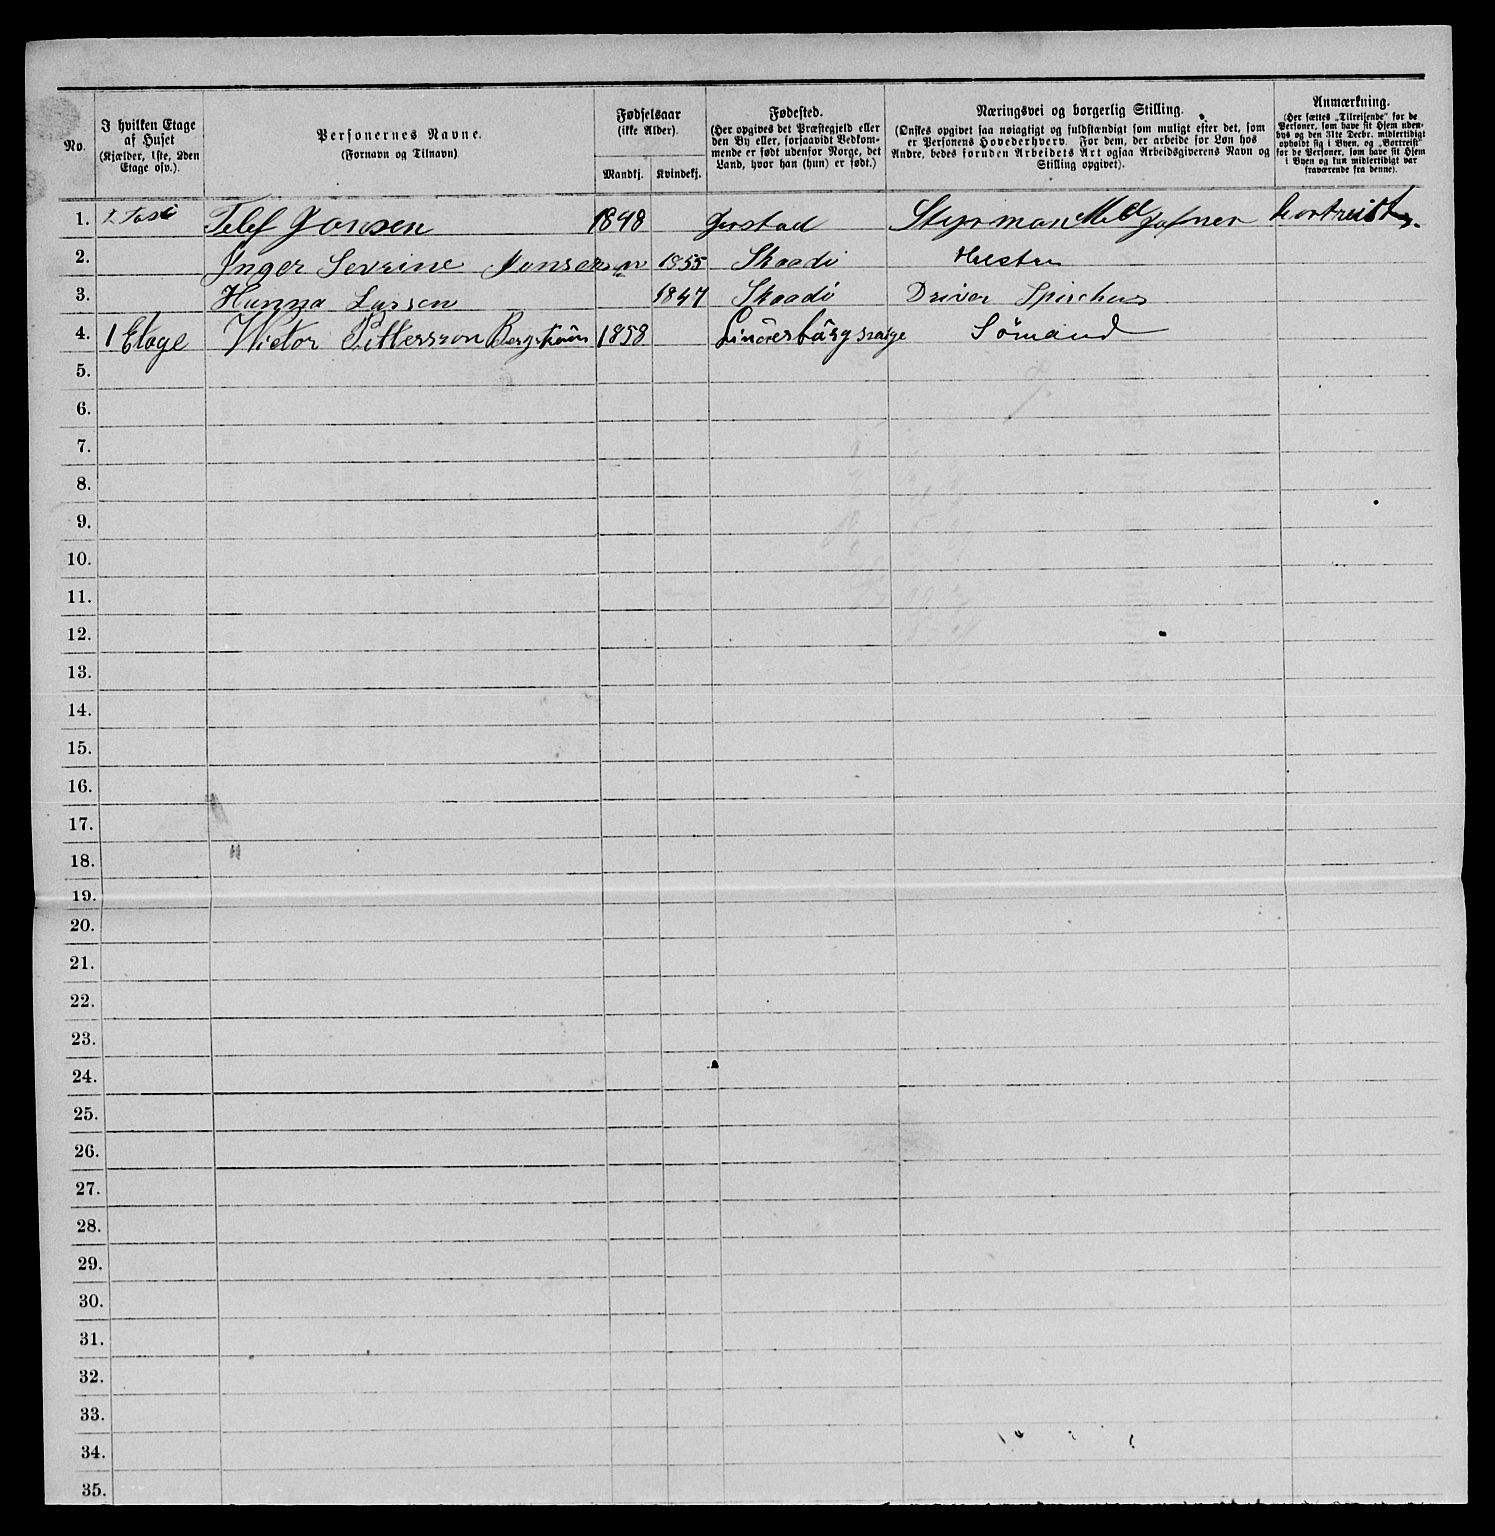 No.
I hvilken Etage
af Huset
(Kjælder, 1ste, 2den
Etage osv.).
Personernes Navne.
(Fornavn og Tilnavn)
Fødselsaar
(ikke Alder).
Mandkj. Kvindekj.
Fødested.
(Her opgives det Præstegjeld eller
den By eller, forsaavidt Vedkom-
mende er født udenfor Norge, det
Land, hvor han (hun) er født.)
Næringsvei og borgerlig Stilling.
(Ønskes opgivet saa nøiagtigt og fuldstændigt som muligt efter det, som
er Personens Hovederhverv. For dem, der arbeide for Løn hos
Andre, bedes foruden Arbeidets Art ogsaa Arbeidsgiverens Navn og
Stilling opgivet).
Anmærkning.
(Her sættes „Tilreisende“ for de
Personer, som have sit Hjem uden-
bys og den 31te Decbr. midlertidigt
opholdt sig i Byen, og „Bortreist“
for de Personer, som have sit Hjem
i Byen og kun midlertidigt var
fraværende fra denne).
1. Telef Jansen 1848 Gerstad Styrman bortreist
2. Inger Sevrine Jonsen 1855 Skaadø
3. Hanna Larsen 1847 Skaadø Driver
4. 1 Etage Victor Pittersson Bergstrøm 1858 Sømand
5.
6.
7.
8.
9.
10.
11.
12.
13.
14.
15.
16.
17.
18.
19.
20.
21.
22.
23.
24.
25.
26.
27.
28.
29.
30.
31.
32.
33.
34.
35.